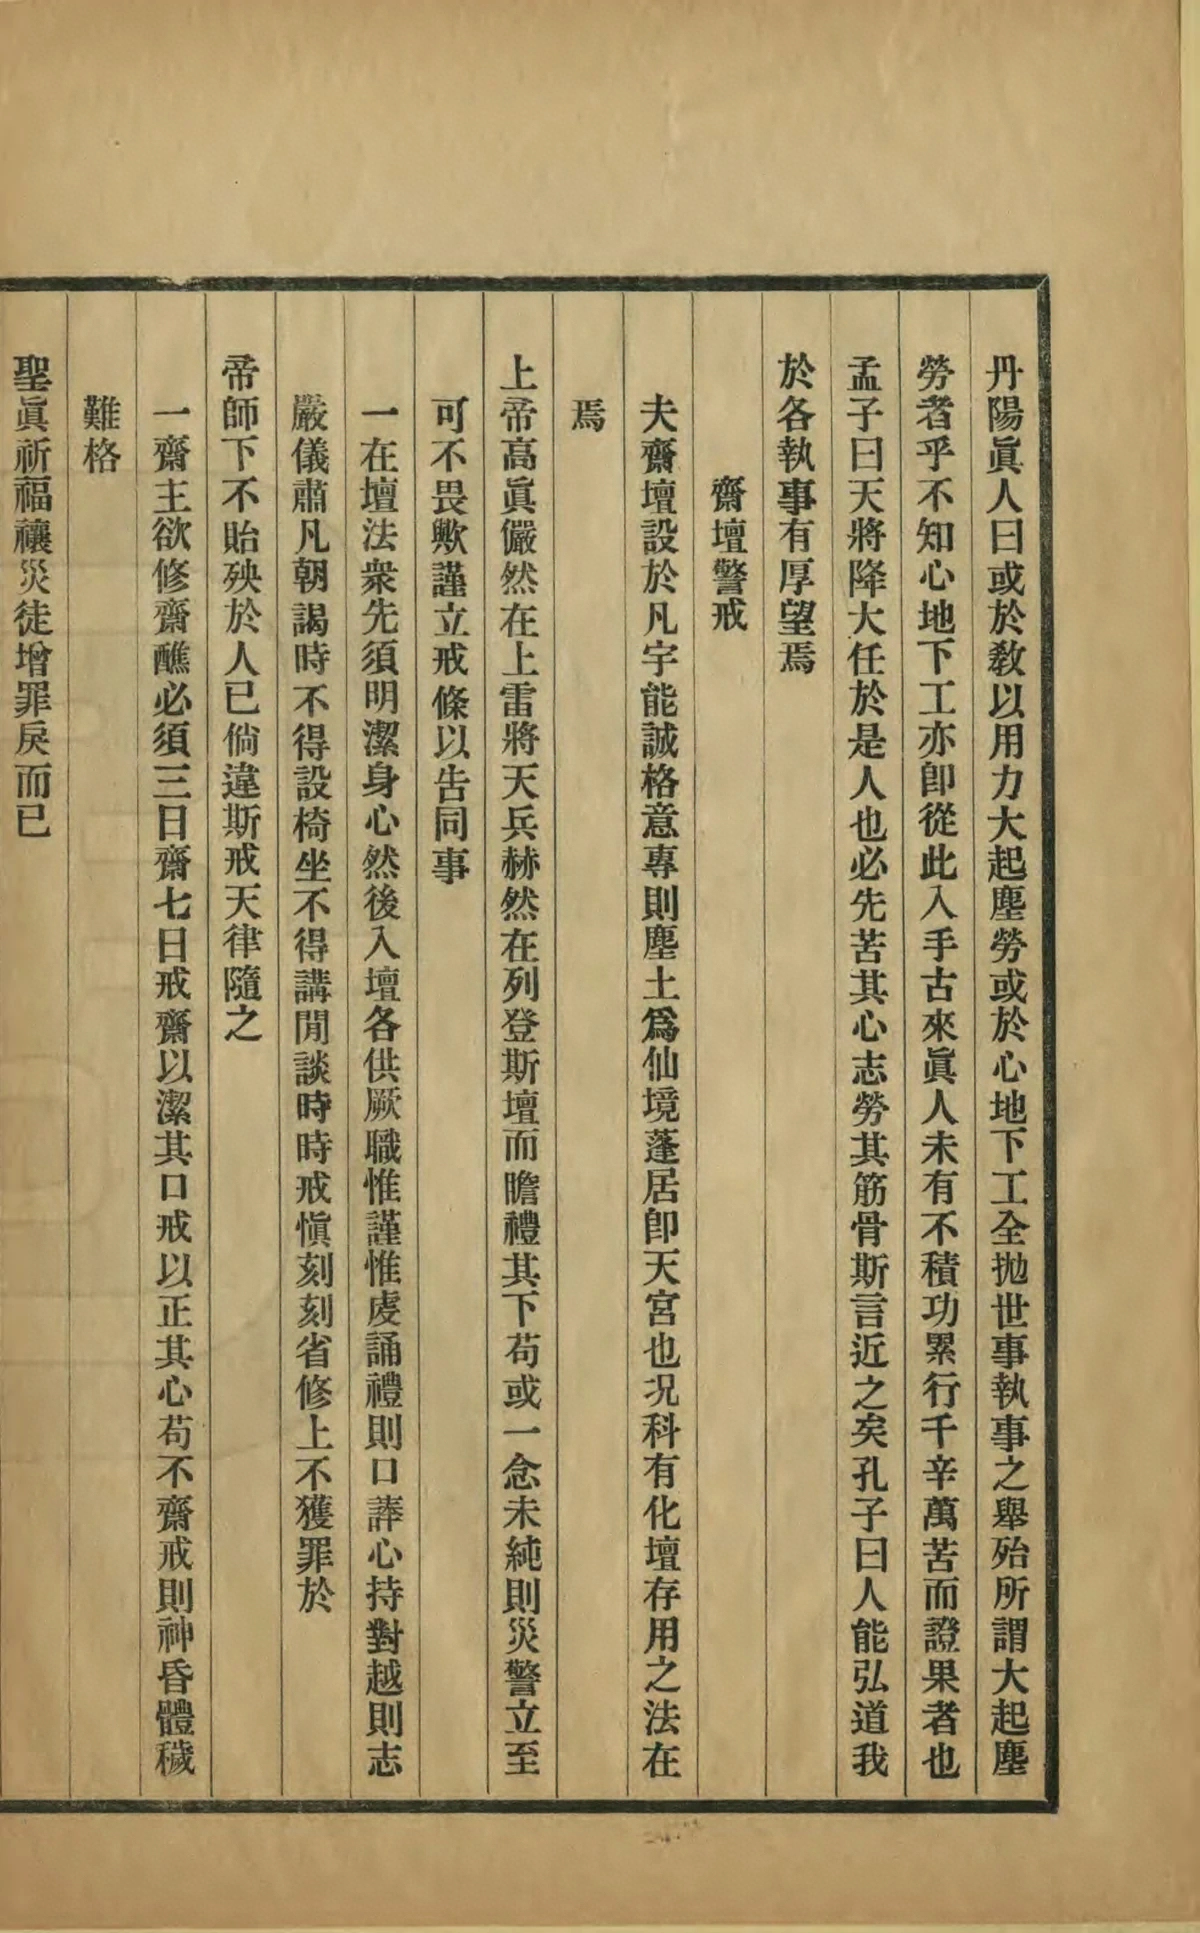 丹陽眞人曰或於敎以用力大起塵勞或於心地下工全抛世事執事之舉殆所謂大起塵
勞者乎不知心地下工亦卽從此入手古來眞人未有不積功累行千辛萬苦而證果者也
孟子曰天將降大任於是人也必先苦其心志勞其筋骨斯言近之矣孔子曰人能弘道我
於各執事有厚望焉
齋壇警戒
夫齋壇設於凡宇能誠格意專則塵土爲仙境蓬居卽天宮也况科有化壇存用之法在
焉
上帝高眞儼然在上雷將天兵赫然在列登斯壇而瞻禮其下苟或一念未純則災警立至
可不畏歟謹立戒條以告同事
一在壇法衆先須明潔身心然後入壇各供厥職惟謹惟虔誦禮則口諱心持對越則志
嚴儀肅凡朝謁時不得設椅坐不得講閒談時時戒愼刻刻省修上不獲罪於
帝師下不貽殃於人已倘違斯戒天律隨之
一齋主欲修齋醮必須三日齋七日戒齋以潔其口戒以正其心苟不齋戒則神昏體穢
難格
聖眞祈福禳災徒增罪戾而已